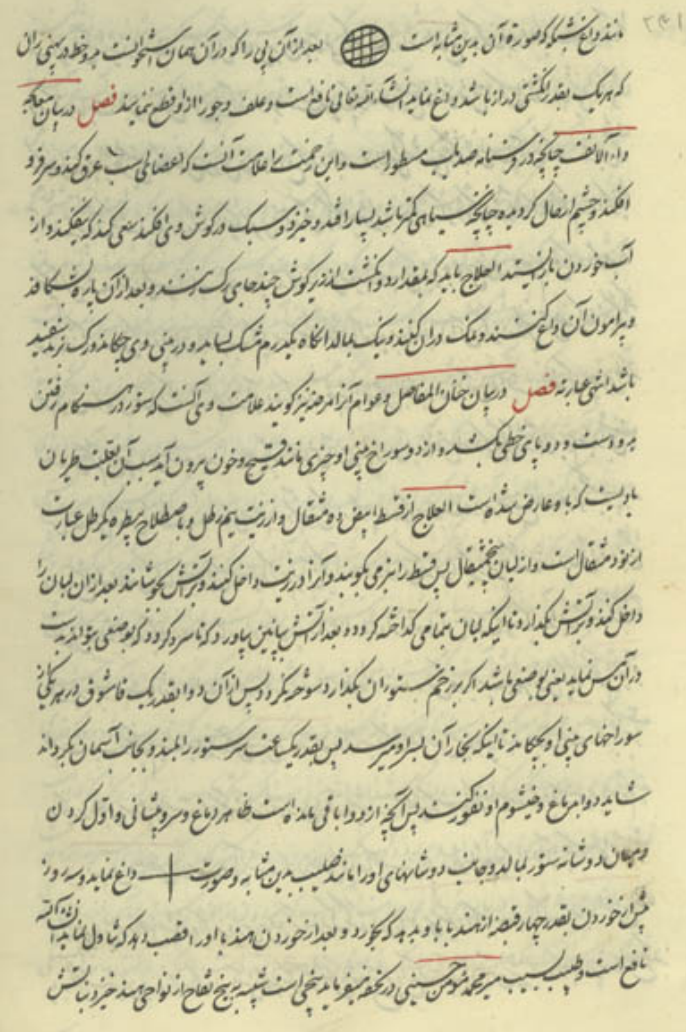 مانند داغ شبکه که صورة آن بدین مثابه است بعد از آن پی را که در آن همان استخوانست به دو خط در بینی ران
که هر یک بقدر انگشتی دراز باشد داغ نماید انشاء الله تعالی نافع است و علف و جو را از او قطع نمایند فصل در بیان معالجه
داء الانف چنانچه در فرسنامه مسطور است و این زحمت را علامت آنست که اعضای اسب عرق کند و سر فرو
افکند و چشم از حال گردیده چنانچه سیاهی کمتر باشد بسیار افتد و خیزد و سبک در گوش وی افکند سعی کند که بیفکند و از
آب خوردن باز ایستد العلاج باید که بمقدار دو انگشت از زیر گوش چند جای رگ زنند و بعد از آن پاره بشکافد
و پیرامون آن داغ کنند و نمک در آن کنند و نیک بمالد آنگاه یکدرم مشک بساید و در بینی وی چکاند و رگ زند مفید
باشد انتهی عبارته فصل در بیان خنان المفاصل و عوام آنرا نیز گویند علامت وی آنست که ستور در هنگام رفتن
بر و دست و دو پای خطی بکشد و از دو سوراخ بینی او چیزی مانند قیح و خون بیرون آید سبب آن بغلب
بادیست که باو عارض شده است العلاج از قسط ابیض ده مثقال و از زیت نیم رطل و باصطلاح بیطره یکرطل عبارت
از نود مثقال است و از لبان پنجمثقال پس قسط را بنرمی بکوبند و آنرا در زیت داخل کنند و بر آتش بجوشانند بعد از آن لبان را
داخل کنند و بر آتش بگذارد تا اینکه لبان بتمامی گداخته گردد و بعد از آتش پائین بیاورد که تا سرد گردد که بوصفی بتواند دست
در آن مس نماید یعنی بوصفی باشد اگر بر زخم ستوران بگذارد سوخته نگردد پس از آن دوا بقدر یک قاشوق در هر یک از
سوراخهای بینی او بچکاند تا اینکه بخار آن بسر او برسد پس بقدر یکساعت سر ستور را بلند و بجانب آسمان بگرداند
شاید دوا بدماغ و خیشوم او نفوذ کند پس آنچه از دوا باقی مانده است ظاهر دماغ و سر و پیشانی و اول گردن
و میان دو شانه ستور بمالد و جانب دو شانهای او را مانند صلیب بدین مثابه و صورت داغ نماید و سه روز
پیش از خوردن بقدر چهار قبضه از هندبا باو بدهد که بخورد و بعد از خوردن هندبا او را قصب دهد که تناول نماید
نافع است و طبیب لبیب میر محمد مؤمن حسینی در تحفه میفرماید بیخی است شبیه به بیخ تفاح از نواحی هند خیزد و نباتش